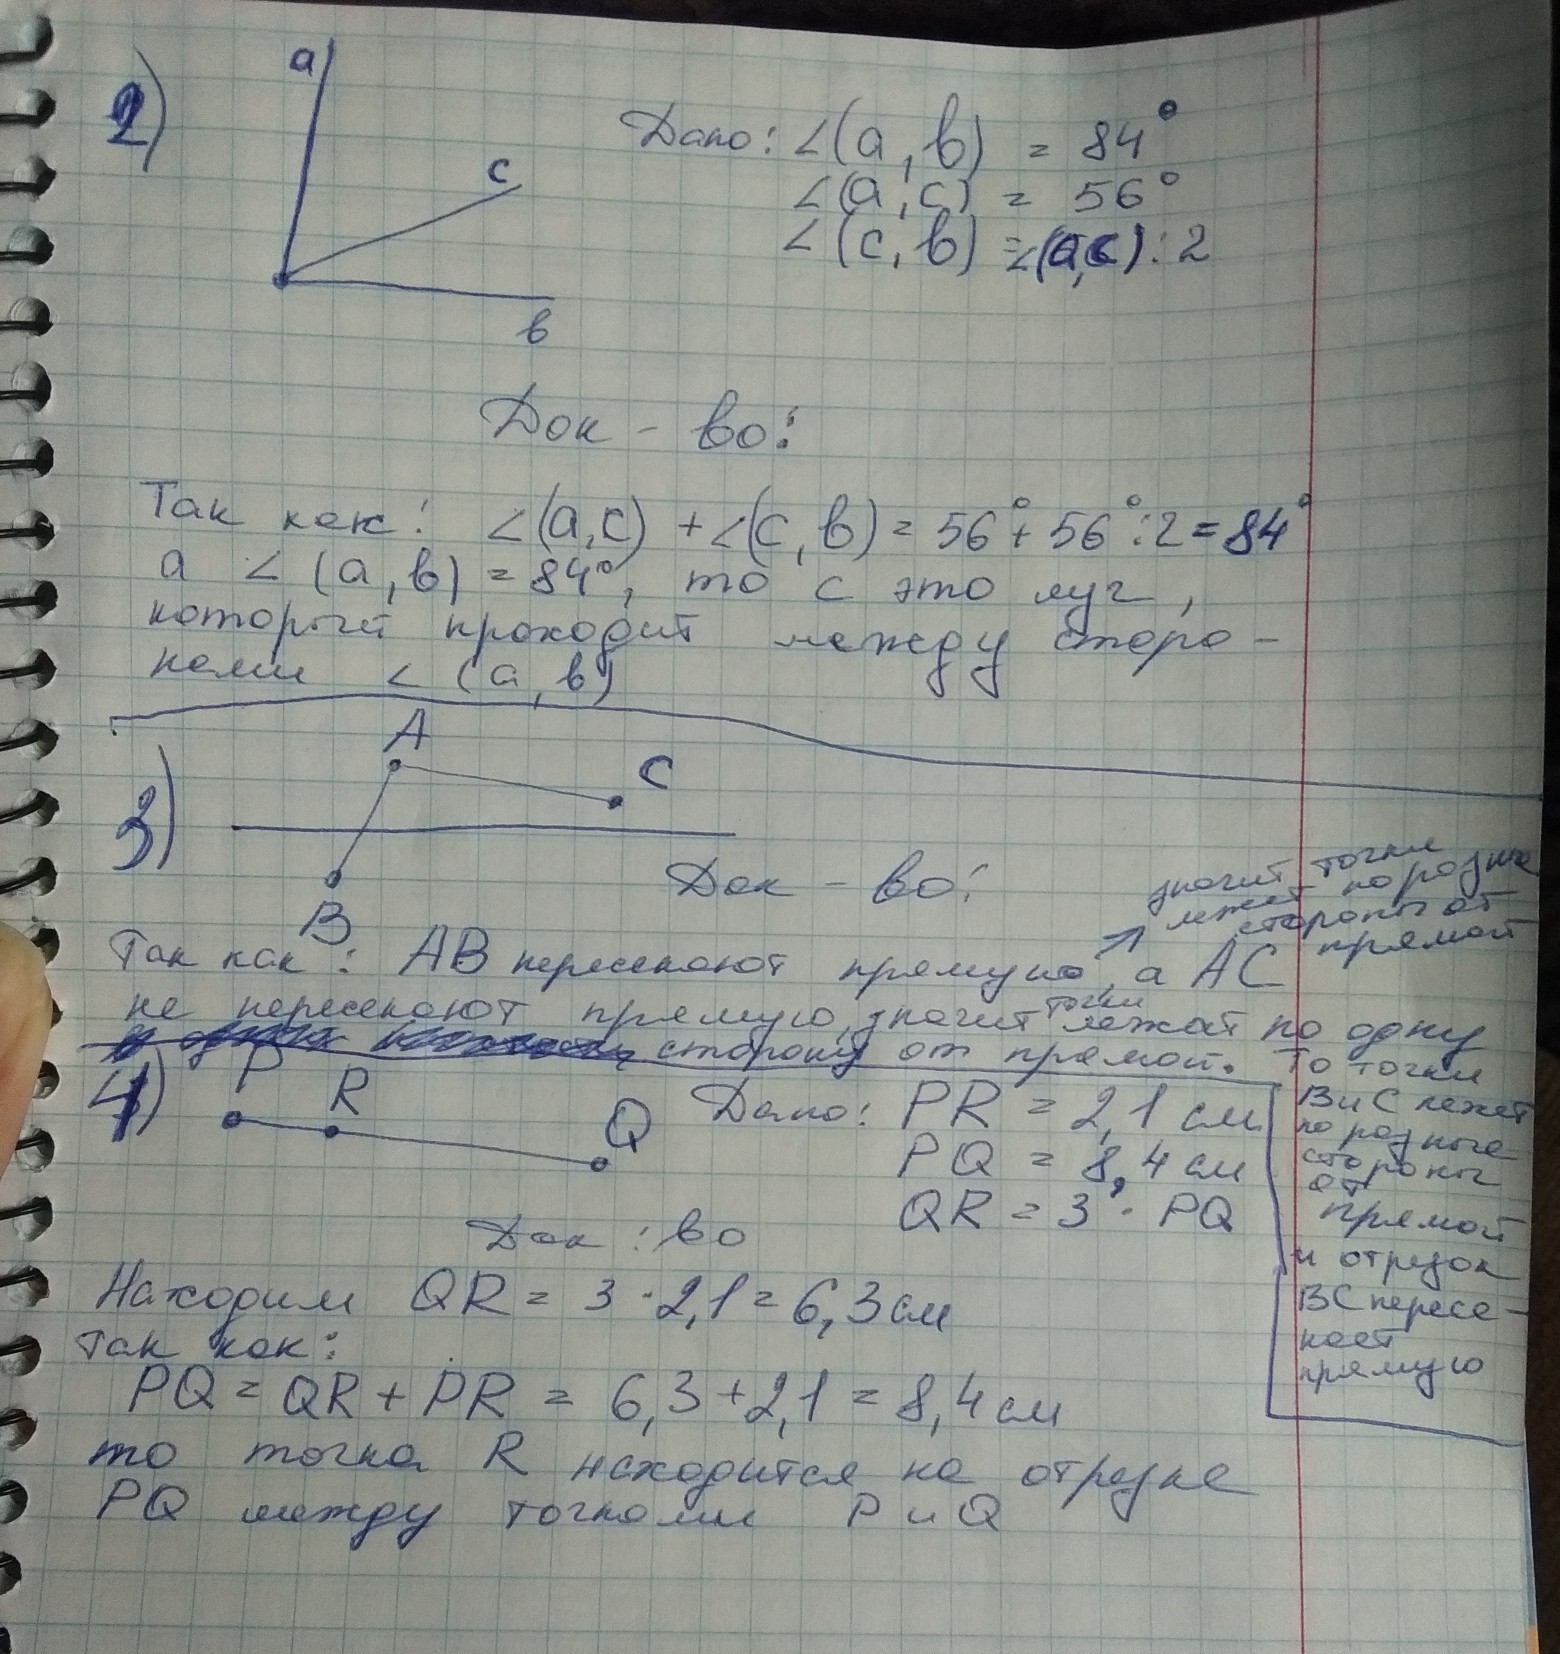 2)
a
c
в
Дано: ∠(a, в) = 84°
∠(a, c) = 56°
∠(c, в) = ∠(a,c) : 2
Док - во:
Так как: ∠(a,c) + ∠(c, в) = 56° + 56° : 2 = 84°
а ∠(a, в) = 84°, то c это луч,
который проходит между сторо-
нами ∠(a, в)
3)
A
C
B
Док - во:
значит точки
лежат по разные
стороны от
прямой
Так как: AB пересекают прямую, а AC
не пересекают прямую, значит точки лежат по одну
сторону от прямой. То точки
B и C лежат
по разные
стороны
от
прямой
и отрезок
BC пересе-
кает
прямую
4)
P
R
Q
Дано: PR = 2,1 см
PQ = 8,4 см
QR = 3 · PQ
Док : во
Находим QR = 3 · 2,1 = 6,3 см
Так как:
PQ = QR + PR = 6,3 + 2,1 = 8,4 см
то точка R находится на отрезке
PQ между точками P и Q